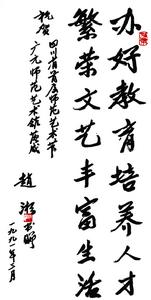 办好教育培养人才
繁荣文艺丰富生活
祝贺
四川省首届师范艺术节
广元师范艺术馆落成
赵
书
一九九一年三月